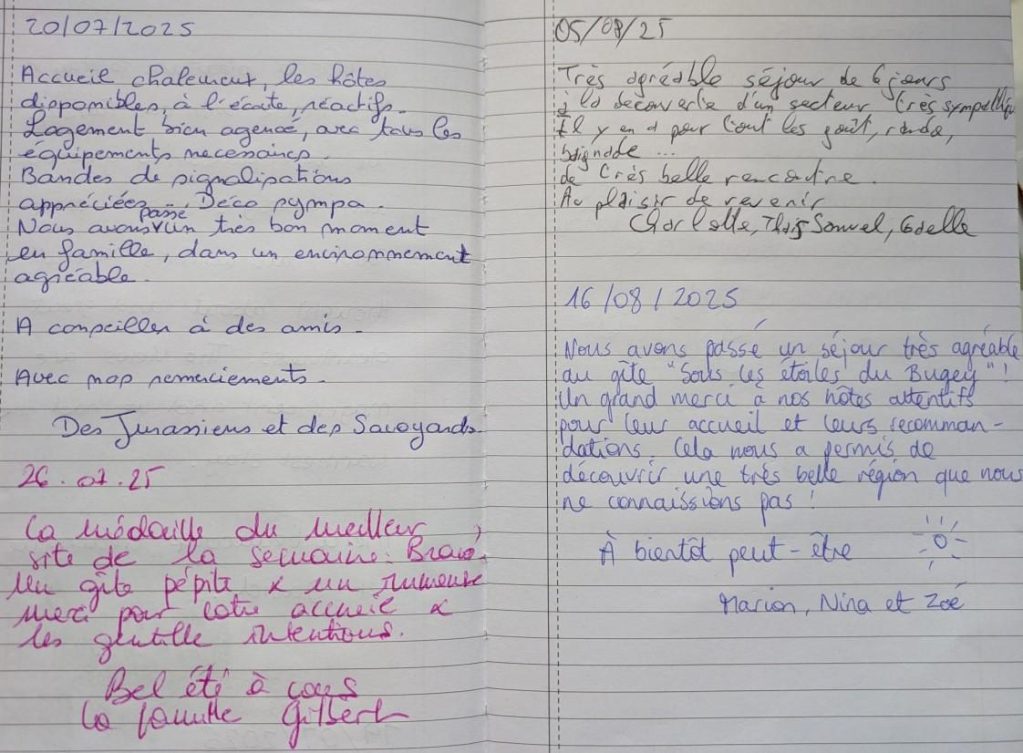 20/07/2025
Accueil chaleureux, les hôtes
disponibles, à l'écoute, réactifs.
Logement bien agencé, avec tous les
équipements necessaires.
Bandes de signalisations
appréciées - Déco sympa.
Nous avons passé un très bon moment
en famille, dans un environnement
agréable.
A conseiller à des amis.
Avec nos remerciements.
Des Jurassiens et des Savoyards.
26.07.25
La médaille du meilleur
site de la semaine. Bravo.
Un gîte pépite & un immense
merci pour votre accueil &
les gentille intentions.
Bel été à vous
La famille Gilbert
05/08/25
Très agréable séjour de 6 jours
à la découverte d'un secteur très sympathique
Il y en a pour tout les goût, rando,
baignade ...
de très belle rencontre.
Au plaisir de revenir
Charlotte, Samuel,
16/08/2025
Nous avons passé un séjour très agréable
au gîte "Sous les étoiles du Bugey"!
Un grand merci à nos hôtes attentifs
pour leur accueil et leurs recomman-
dations. Cela nous a permis de
découvrir une très belle région que nous
ne connaissions pas !
À bientôt peut-être
Marion, Nina et Zoé